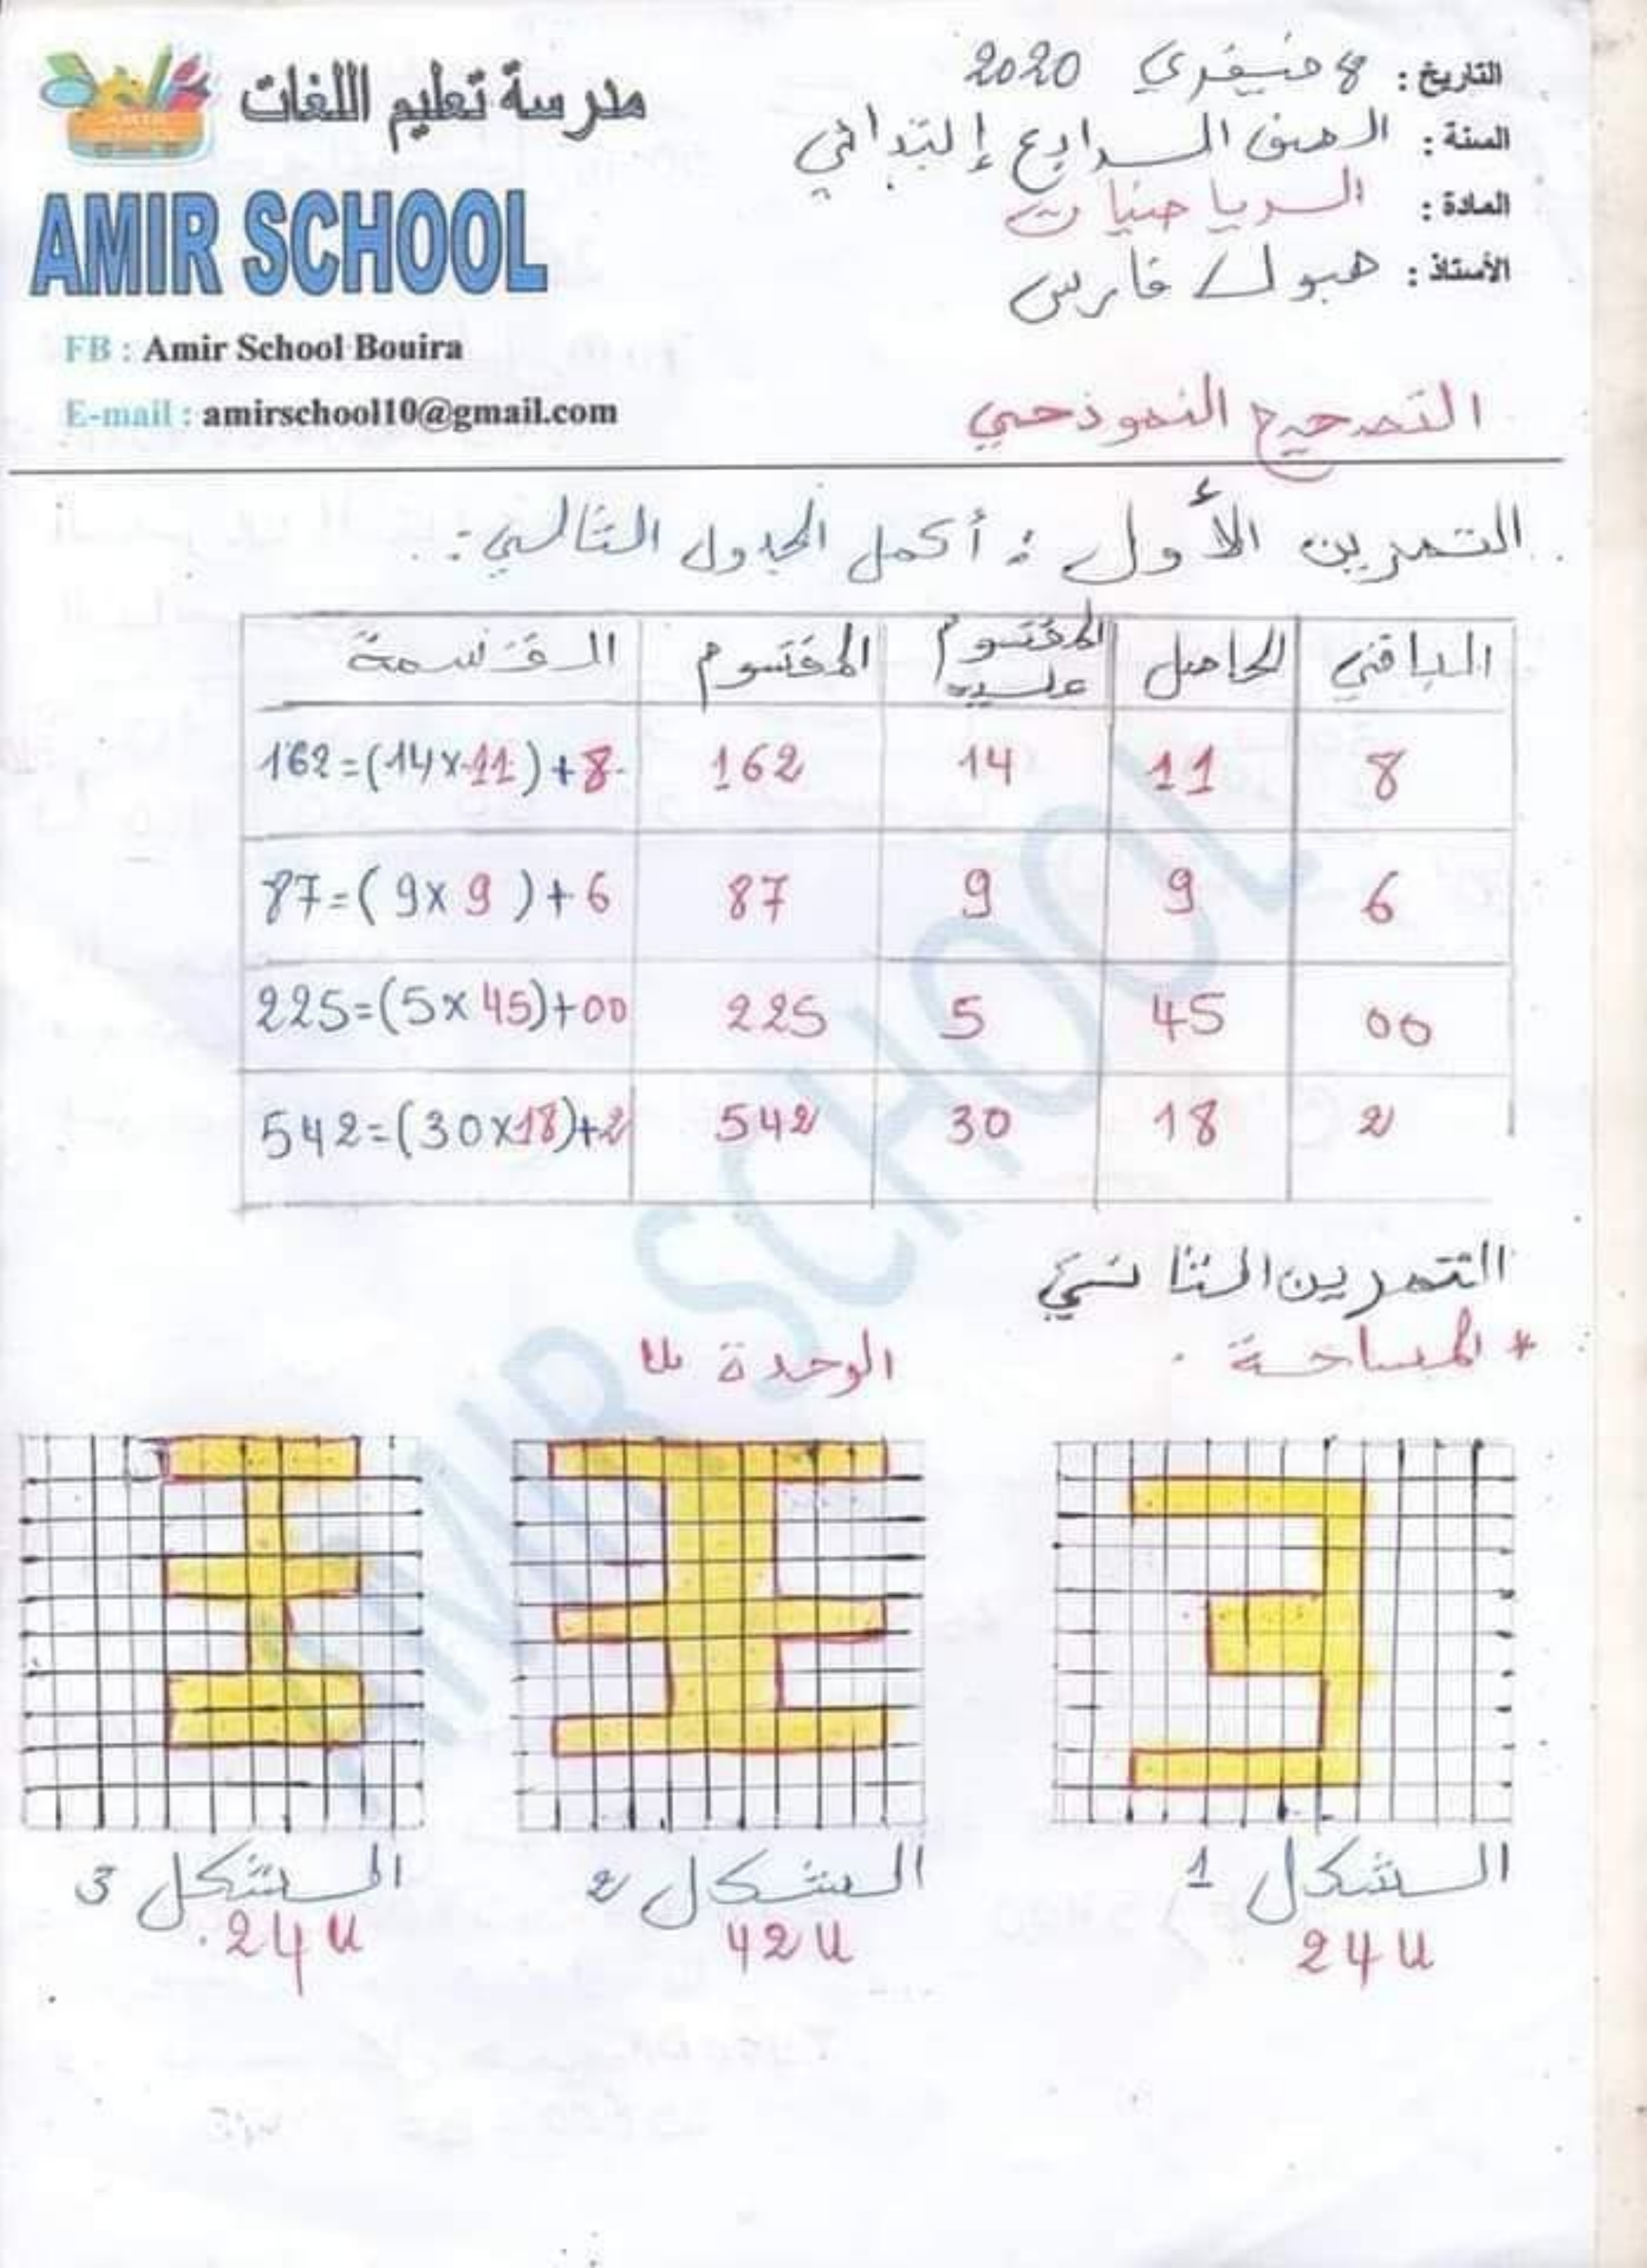 مدرسة تعليم اللغات
AMIR SCHOOL
FB : Amir School Bouira
E-mail : amirschool10@gmail.com
التاريخ : 8 فيفري 2020
السنة : الصف الرابع إبتدائي
المادة : الرياضيات
الأستاذ : هبول فارس
التصحيح النموذجي
التمرين الأول : أكمل الجدول التالي :
القسمة المقسوم المقسوم عليه الحاصل الباقي
162=(14×11)+8 162 14 11 8
87=(9×9)+6 87 9 9 6
225=(5×45)+00 225 5 45 00
542=(30×18)+2 542 30 18 2
التمرين الثاني
* المساحة . الوحدة u
الشكل 1 الشكل 2 الشكل 3
24u 42u 24u
AMIR SCHOOL